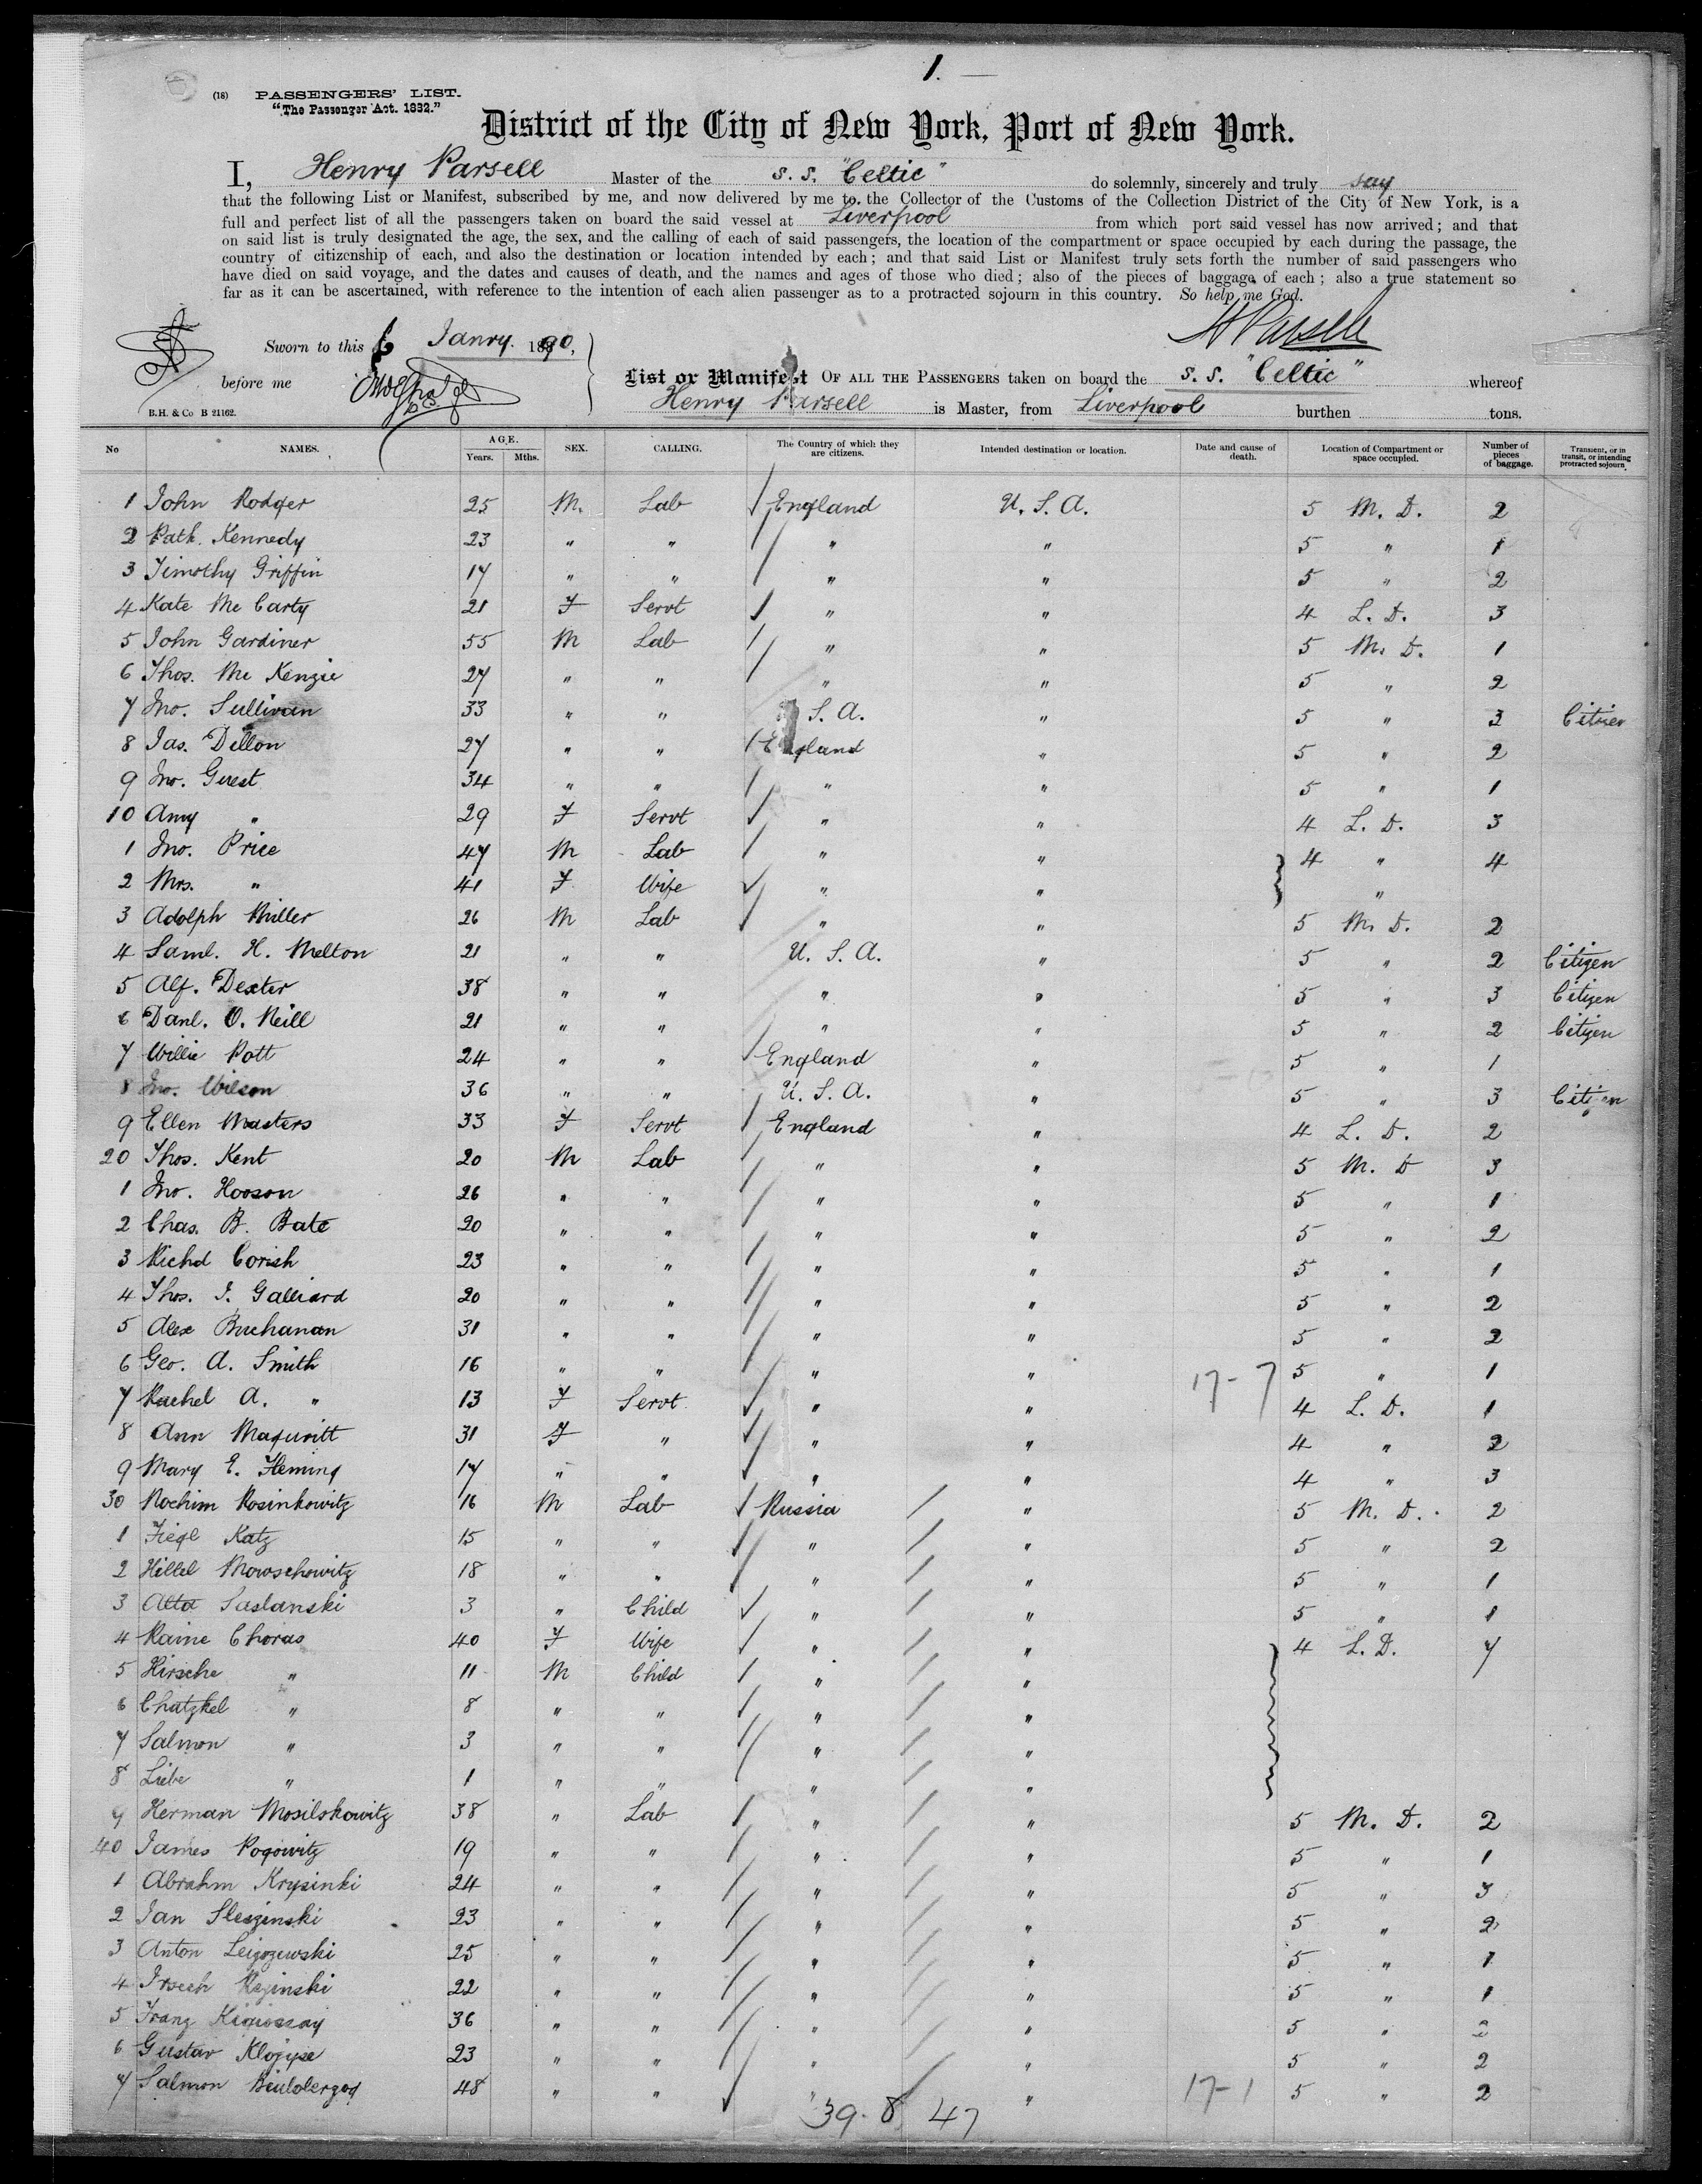 1.
(18) PASSENGERS' LIST.
"The Passenger Act. 1882."
District of the City of New York, Port of New York.
I, Henry Parsell Master of the s. s. "Celtic" do solemnly, sincerely and truly say
that the following List or Manifest, subscribed by me, and now delivered by me to the Collector of the Customs of the Collection District of the City of New York, is a
full and perfect list of all the passengers taken on board the said vessel at Liverpool from which port said vessel has now arrived; and that
on said list is truly designated the age, the sex, and the calling of each of said passengers, the location of the compartment or space occupied by each during the passage, the
country of citizenship of each, and also the destination or location intended by each; and that said List or Manifest truly sets forth the number of said passengers who
have died on said voyage, and the dates and causes of death, and the names and ages of those who died; also of the pieces of baggage of each; also a true statement so
far as it can be ascertained, with reference to the intention of each alien passenger as to a protracted sojourn in this country. So help me God.
H Parsell
Sworn to this 6 Janry. 1890,
before me
List or Manifest OF ALL THE PASSENGERS taken on board the s. s. "Celtic" whereof
B.H. & Co B 21162.
Henry Parsell is Master, from Liverpool burthen tons.
No NAMES. AGE. Years. Mths. SEX. CALLING. The Country of which they are citizens. Intended destination or location. Date and cause of death. Location of Compartment or space occupied. Number of pieces of baggage. Transient, or in transit, or intending protracted sojourn
1 John Rodger 25 M. Lab England U. S. A. 5 M. D. 2
2 Patk. Kennedy 23 " " " " 5 " 1
3 Timothy Griffin 17 " " " " 5 " 2
4 Kate Mc Carty 21 F Servt " " 4 L. D. 3
5 John Gardiner 55 M Lab " " 5 M. D. 1
6 Thos. Mc Kenzie 27 " " " " 5 " 2
7 Jno. Sullivan 33 " " S. A. " 5 " 3 Citizen
8 Jas. Dillon 27 " " England " 5 " 2
9 Jno. Guest 34 " " " " 5 " 1
10 Amy " 29 F Servt " " 4 L. D. 3
1 Jno. Price 47 M Lab " " 4 " 4
2 Mrs. " 41 F Wife " " "
3 Adolph Miller 26 M Lab " " 5 M. D. 2
4 Saml. H. Melton 21 " " U. S. A. " 5 " 2 Citizen
5 Alf. Dexter 38 " " " " 5 " 3 Citizen
6 Danl. O. Neill 21 " " " " 5 " 2 Citizen
7 Willie Pott 24 " " England " 5 " 1
8 Jno. Wilson 36 " " U. S. A. " 5 " 3 Citizen
9 Ellen Masters 33 F Servt England " 4 L. D. 2
20 Thos. Kent 20 M Lab " " 5 M. D 3
1 Jno. Hooson 26 " " " " 5 " 1
2 Chas. B. Bate 20 " " " " 5 " 2
3 Richd Corish 23 " " " " 5 " 1
4 Thos. J. Galliard 20 " " " " 5 " 2
5 Alex Buchanan 31 " " " " 5 " 2
6 Geo. A. Smith 16 " " " " 17-7 5 " 1
7 Rachel A. " 13 F Servt " " 4 L. D. 1
8 Ann Maqueritt 31 F " " " 4 " 2
9 Mary E. Fleming 17 " " " " 4 " 3
30 Nochim Rosinkowitz 16 M Lab Russia " 5 M. D. 2
1 Fiegl Katz 15 " " " " 5 " 2
2 Hillel Mowschowitz 18 " " " " 5 " 1
3 Alta Saslanski 3 " Child " " 5 " 1
4 Raine Choras 40 F Wife " " 4 L. D. 7
5 Hirsche " 11 M Child " "
6 Chatzkel " 8 " " " "
7 Salmon " 3 " " " "
8 Liebe " 1 " " " "
9 Herman Mosilskowitz 38 " Lab " " 5 M. D. 2
40 James Pogowitz 19 " " " " 5 " 1
1 Abrahm Krysinki 24 " " " " 5 " 3
2 Jan Sleszinski 23 " " " " 5 " 2
3 Anton 25 " " " " 5 " 1
4 22 " " " " 5 " 1
5 Franz 36 " " " " 5 " 2
6 Gustav 23 " " " " 5 " 2
7 Salmon 48 " " " " 17-1 5 " 2
39. 8 47